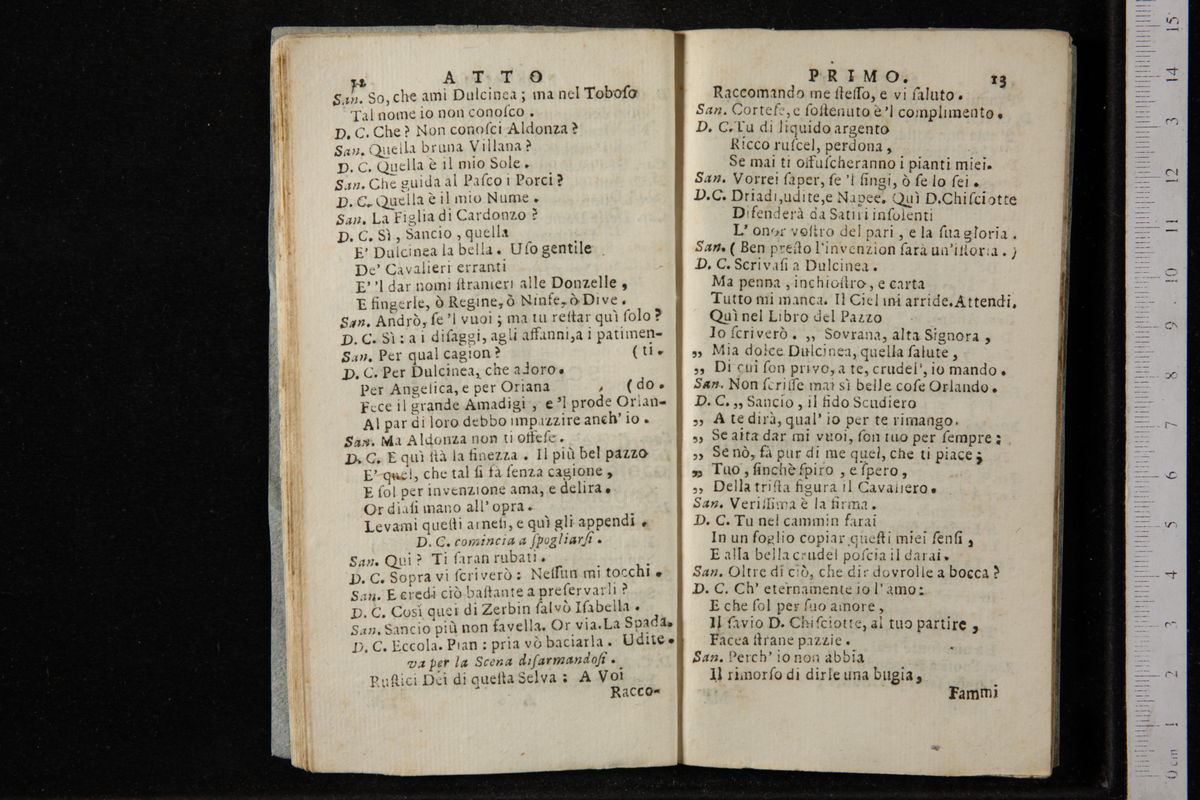 12 ATTO
San. So, che ami Dulcinea ; ma nel Toboſo
Tal nome io non conoſco .
D. C. Che ? Non conoſci Aldonza ?
San. Quella bruna Villana ?
D. C. Quella è il mio Sole .
San. Che guida al Paſco i Porci ?
D. C. Quella è il mio Nume .
San. La Figlia di Cardonzo ?
D. C. Sì , Sancio , quella
E' Dulcinea la bella . Uſo gentile
De' Cavalieri erranti
E' 'l dar nomi ſtranieri alle Donzelle ,
E fingerle, ò Regine, ò Ninfe, ò Dive .
San. Andrò, ſe 'l vuoi ; ma tu reſtar quì ſolo ?
D. C. Sì : a i diſaggi, agli affanni,a i patimen-
San. Per qual cagion ? ( ti .
D. C. Per Dulcinea, che adoro .
Per Angelica, e per Oriana ( do .
Fece il grande Amadigi , e 'l prode Orlan-
Al par di loro debbo impazzire anch' io .
San. Ma Aldonza non ti offeſe .
D. C. E quì ſtà la finezza . Il più bel pazzo
E' quel, che tal ſi fà ſenza cagione ,
E ſol per invenzione ama, e delira .
Or diaſi mano all' opra .
Levami queſti arneſi, e quì gli appendi .
D. C. comincia a ſpogliarſi .
San. Qui ? Ti ſaran rubati .
D. C. Sopra vi ſcriverò : Neſſun mi tocchi .
San. E credi ciò baſtante a preſervarli ?
D. C. Così quei di Zerbin ſalvò Iſabella .
San. Sancio più non favella. Or via. La Spada.
D. C. Eccola. Pian : pria vò baciarla . Udite .
va per la Scena diſarmandoſi .
Ruſtici Dei di queſta Selva : A Voi
Racco-
PRIMO. 13
Raccomando me ſteſſo, e vi ſaluto .
San. Corteſe, e ſoſtenuto è 'l complimento .
D. C. Tu di liquido argento
Ricco ruſcel, perdona ,
Se mai ti offuſcheranno i pianti miei.
San. Vorrei ſaper, ſe 'l fingi, ò ſe lo ſei .
D.C. Driadi,udite,e Napee. Quì D.Chiſciotte
Difenderà da Satiri inſolenti
L' onor voſtro del pari , e la ſua gloria .
San. ( Ben preſto l'invenzion ſarà un'iſtoria . )
D. C. Scrivaſi a Dulcinea .
Ma penna , inchioſtro, e carta
Tutto mi manca. Il Ciel mi arride. Attendi.
Quì nel Libro del Pazzo
Io ſcriverò . „ Sovrana, alta Signora ,
„ Mia dolce Dulcinea, quella ſalute ,
„ Di cui ſon privo, a te, crudel', io mando .
San. Non ſcriſſe mai sì belle coſe Orlando .
D. C. „ Sancio , il fido Scudiero
„ A te dirà, qual' io per te rimango.
„ Se aita dar mi vuoi, ſon tuo per ſempre :
„ Se nò, fà pur di me quel, che ti piace ;
„ Tuo , finchè ſpiro , e ſpero ,
„ Della triſta figura il Cavaliero .
San. Veriſſima è la firma .
D. C. Tu nel cammin farai
In un foglio copiar queſti miei ſenſi ,
E alla bella crudel poſcia il darai .
San. Oltre di ciò, che dir dovrolle a bocca ?
D. C. Ch' eternamente io l'amo :
E che ſol per ſuo amore ,
Il ſavio D. Chiſciotte, al tuo partire ,
Facea ſtrane pazzie .
San. Perch' io non abbia
Il rimorſo di dirle una bugia ,
Fammi
0 cm 1 2 3 4 5 6 7 8 9 10 11 12 13 14 15